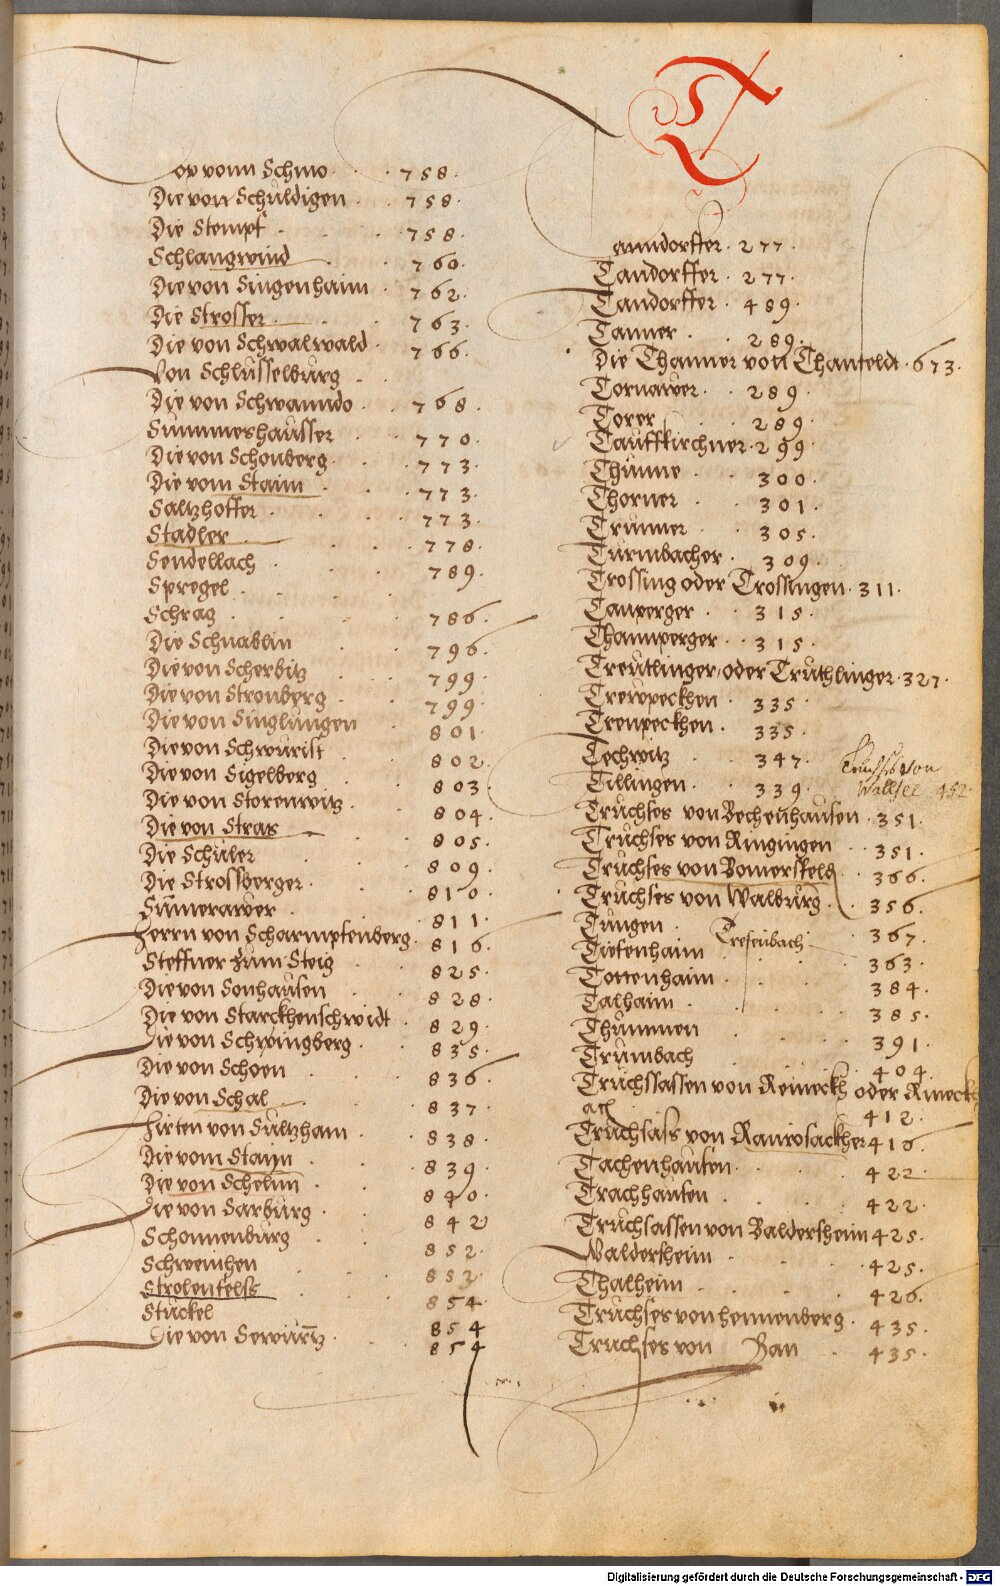 Die von Schuldigen 758.
Die Stempf 758.
Schlangwind 760.
Die von Singenhaim 762.
Die Strosser 763.
Die von Schwalwald 766.
Von Schlusselburg
Die von Schwanndo 768.
Summershausser 770.
Die von Schonberg 773.
Die vom Stain 773.
Saltzhoffer 773.
Stadler 778.
Sendellach 789.
Spregel
Schrag 786.
Die Schnablin 796.
Die von Scherbitz 799.
Die von Stronberg 799.
Die von Singlungen 801.
Die von Schwurist 802.
Die von Sigelberg 803.
Die von Storenwitz 804.
Die von Stras 805.
Die Schuler 809.
Die Strosberger 810.
Sumerawer 811.
Herrn von Scharmpfenberg 816.
Steffner zum Steig 825.
Die von Sonhausen 828.
Die von Starckhenschwidt 829.
Die von Schwingberg 835.
Die von Schoen 836.
Die von Schal 837.
Hirten von Sultzham 838.
Die vom Stain 839.
Die von Schelm 840.
Die von Sarburg 842
Schonnenburg 852.
Schweinhen 853.
Strolenfelss 854.
Stuckel 854
Die von 854
T
Tanndorffer 277.
Tandorffer 277.
Tandorffer 489.
Tanner 289.
Die Thanner von Thanfeldt 673.
Tornawer 289.
Torer 289.
Tauffkirchner 299.
Thunne 300.
Thorner 301.
Trunner 305.
Turmbacher 309.
Trossing oder Trossingen 311.
Tanperger 315.
Thannperger 315.
Treutlinger oder Truthlinger 327.
Trewpeckhen 335.
Trenpeckhen 335.
Techwitz 347.
Truchses von
Wallsee 452.
Tillingen 339.
Truchses von Bechenhausen 351.
Truchses von Ringingen 351.
Truchses von Bomersfeld 366.
Truchses von Walburg 356.
Tungen 367.
Trefenbach
Tiefenhaim 363.
Tottenhaim 384.
Talhaim 385.
Thummen 391.
Trumbach 404.
Truchssassen von Reineckh oder Rineckh
ach 412.
Truchsass von Ranrosackher 416
Tachenhausen 422.
Trachhausen 422.
Truchsassen von Baldersheim 425.
Baldersheim 425.
Thalheim 426.
Truchses von hennenberg 435.
Truchses von Ban 435.
Digitalisierung gefördert durch die Deutsche Forschungsgemeinschaft - DFG